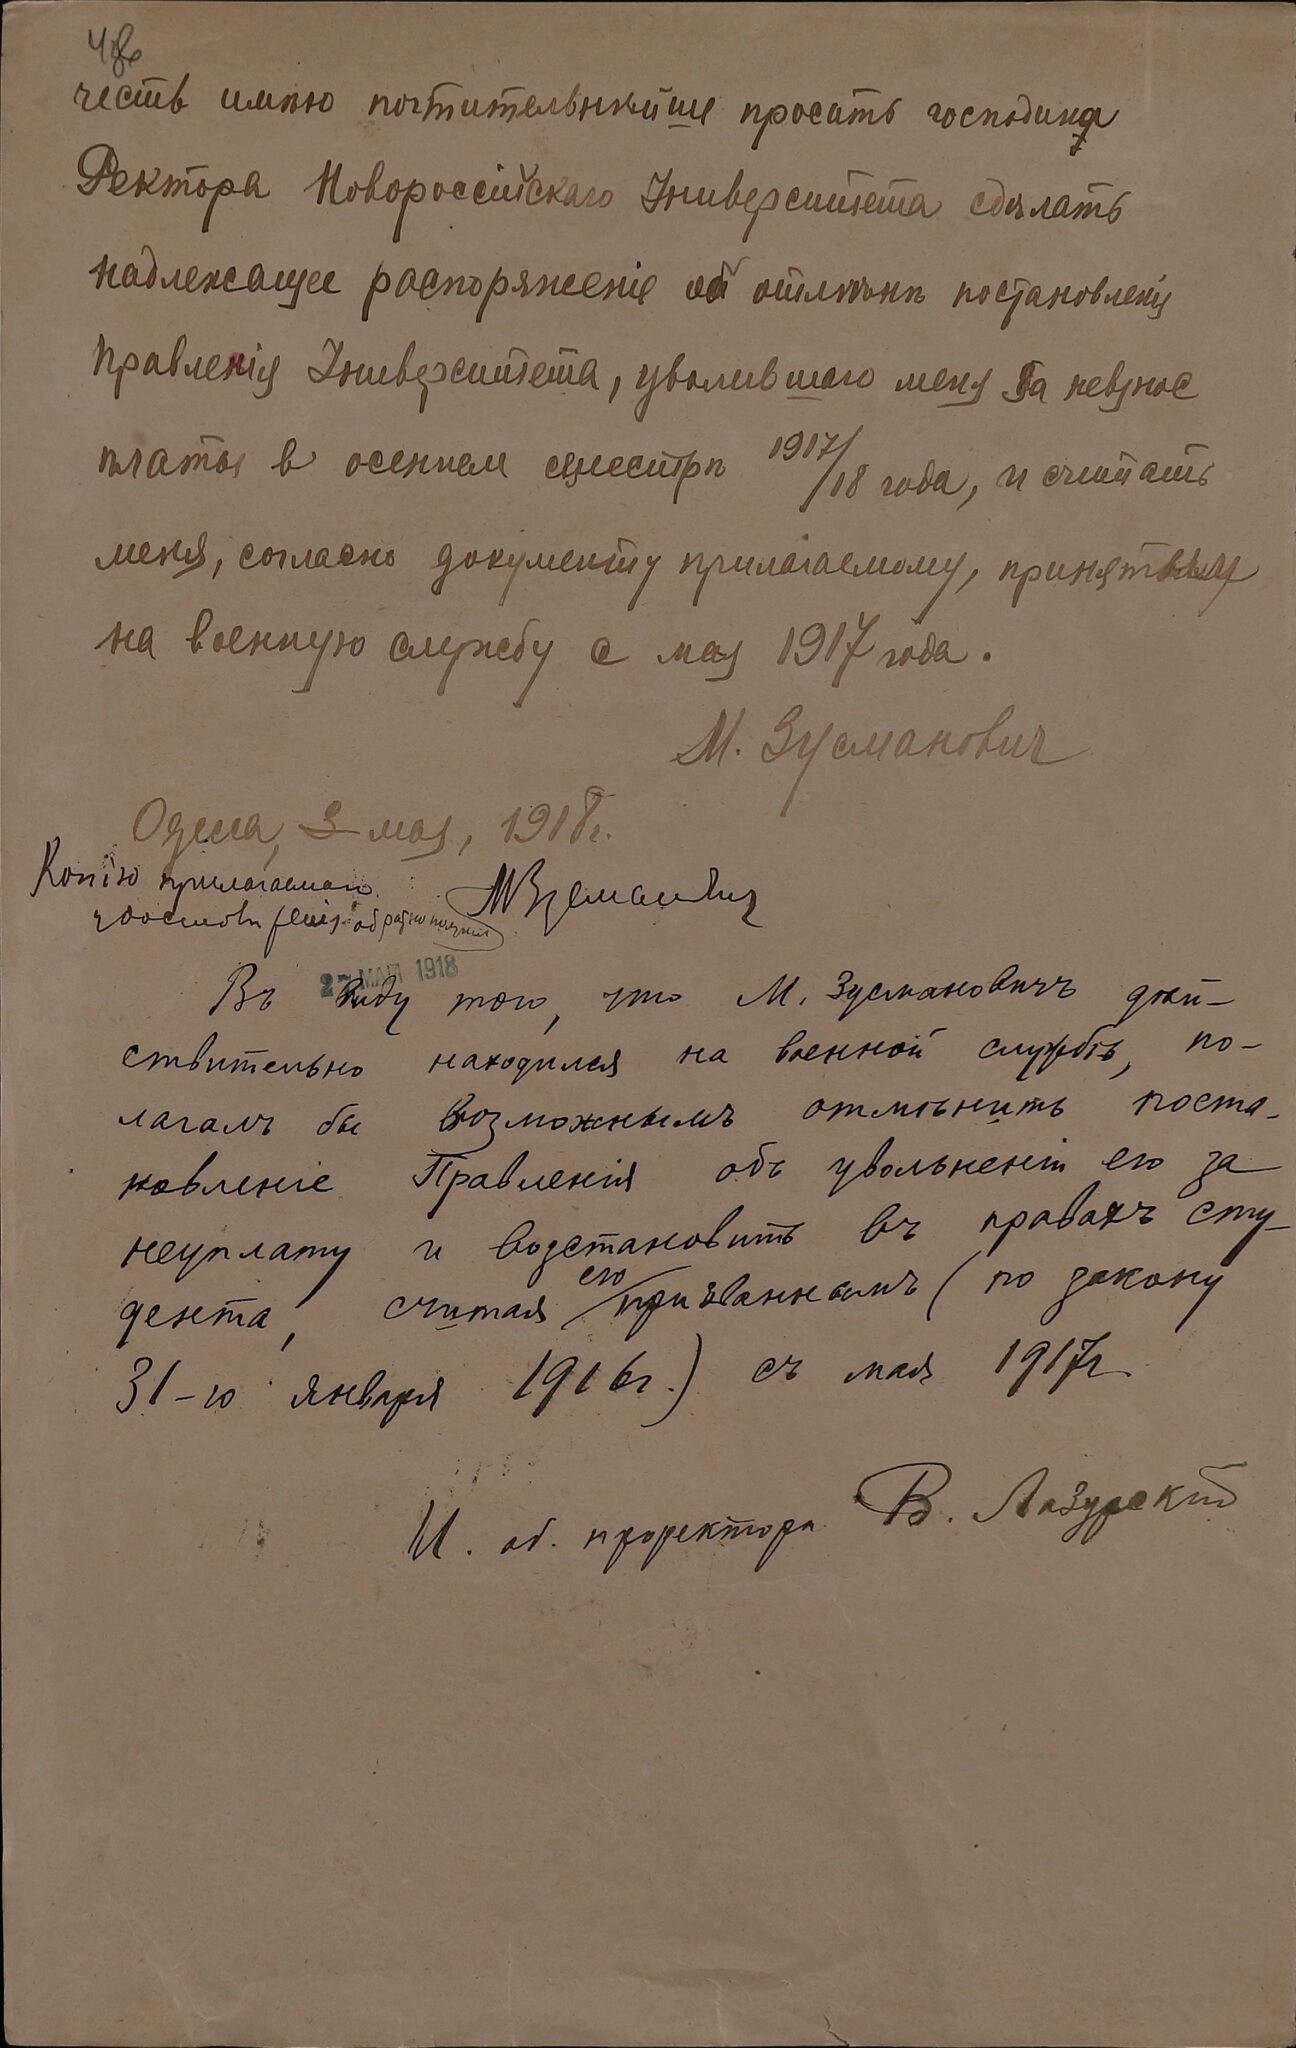 честь имѣю почтительнѣйше просить господина
Ректора Новороссійскаго Университета сдѣлать
надлежащее распоряженіе об отмѣнѣ постановленія
Правленія Университета, уволившаго меня за невзнос
платы в осеннем семестрѣ 1917/18 года, и считать
меня, согласно документу прилагаемому, принятым
на военную службу с мая 1917 года.
М. Зусманович
Одесса, 3 мая, 1918 г.
Копію прилагаемаго
удостовѣренія обратно получил М Зусманович
27 МАЯ 1918
Въ виду того, что М. Зусмановичъ дѣй-
ствительно находился на военной службѣ, по-
лагалъ бы возможнымъ отмѣнить поста-
новленіе Правленія объ увольненіи его за
неуплату и возстановить въ правахъ сту-
дента, считая его призваннымъ (по закону
31-го января 1916 г.) съ мая 1917 г.
И. об. проректора В. Лазурскій